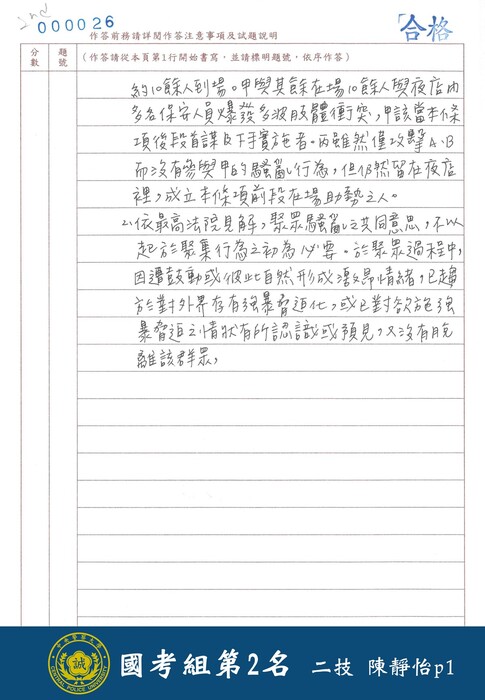 2nd
000026
「合格
作答前務請詳閱作答注意事項及試題說明
分數
題號
(作答請從本頁第1行開始書寫,並請標明題號,依序作答)
約10餘人到場。甲與其餘在場10餘人與夜店內
多名保安人員爆發多波肢體衝突,甲該當本條
項後段首謀及下手實施者。丙雖然僅攻擊A、B
而沒有參與甲的騷亂行為,但仍然留在夜店
裡,成立本條項前段在場助勢之人。
2.依最高法院見解,聚眾騷亂之共同意思,不以
起於聚集行為之初為必要。於聚眾過程中,
因遭鼓動或彼此自然形成激昂情緒,已趨
於對外界存有強暴脅迫化,或已對欲施強
暴脅迫之情狀有所認識或預見,又沒有脫
離該群眾,
中央警察大學
誠
CENTRAL POLICE UNIVERSITY
國考組第2名 二技 陳靜怡p1